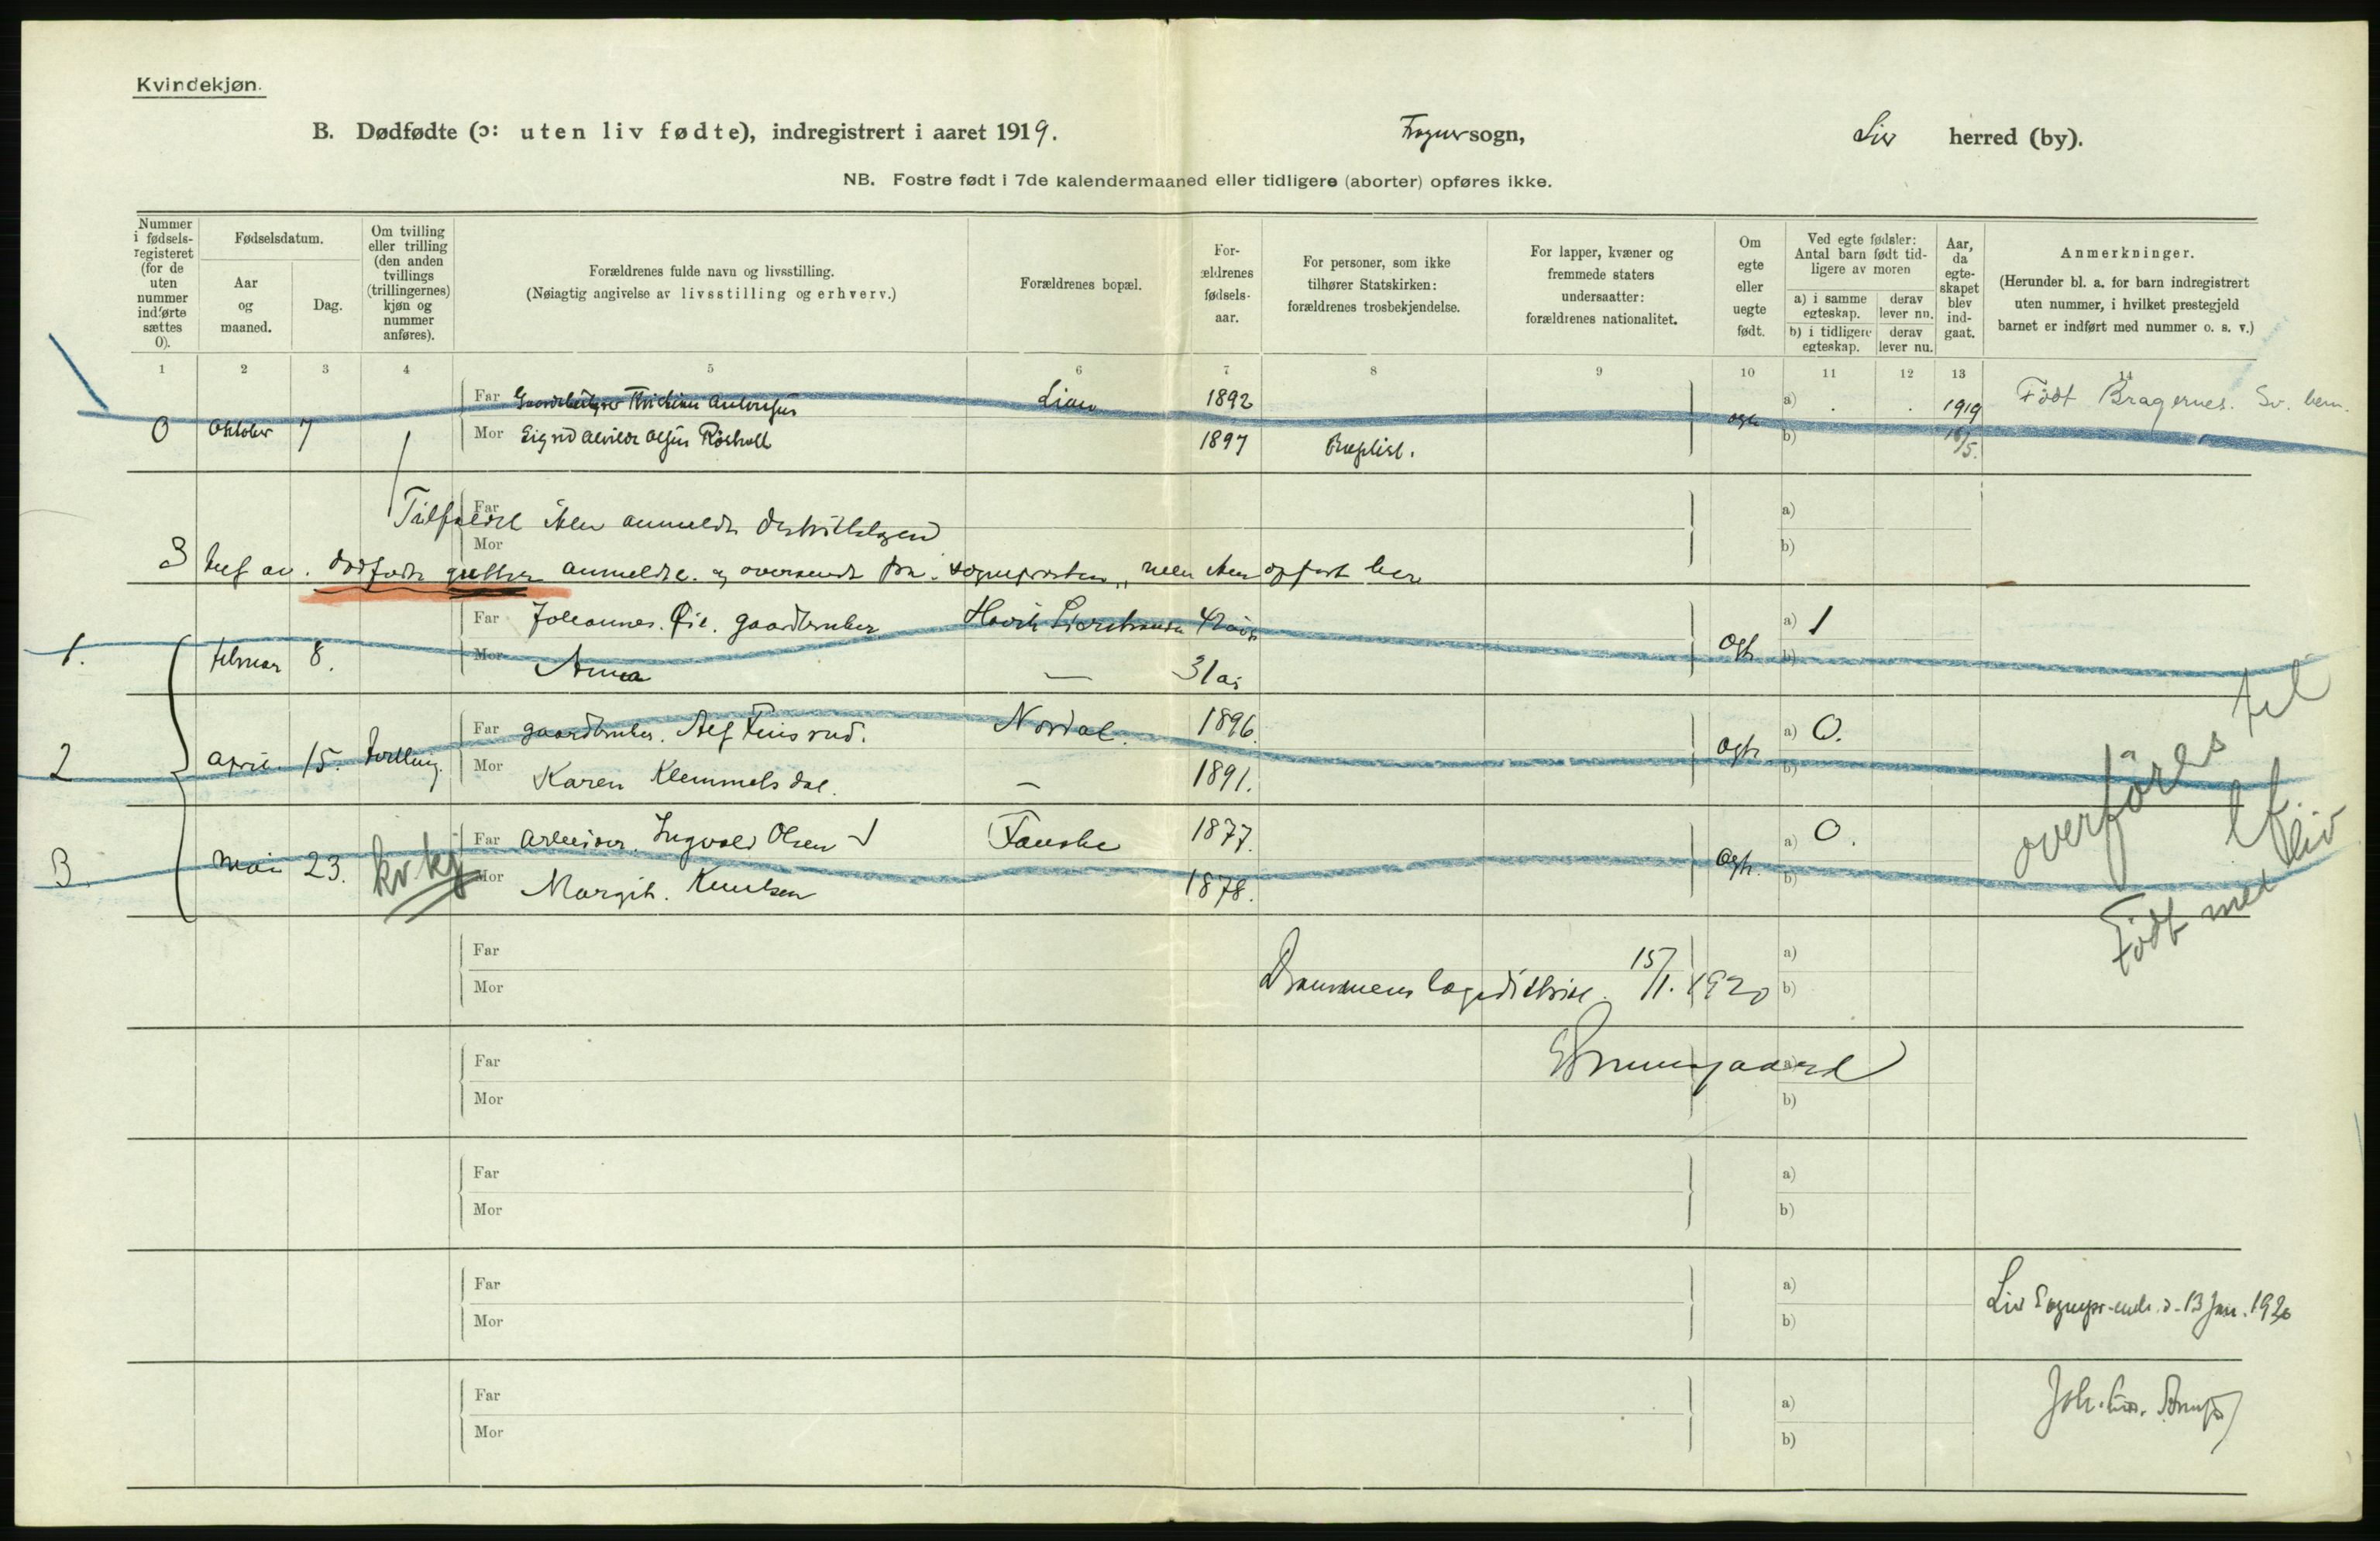 Kvindekjøn.
B. Dødfødte (ɔ: uten liv fødte), indregistrert i aaret 1919. Frogner sogn, Lier herred (by).
NB. Fostre født i 7de kalendermaaned eller tidligere (aborter) opføres ikke.
Nummer i fødsels-registeret (for de uten nummer indførte sættes 0).
Fødselsdatum.
Aar og maaned.
Dag.
Om tvilling eller trilling (den anden tvillings (trillingernes) kjøn og nummer anføres).
Forældrenes fulde navn og livsstilling.
(Nøiagtig angivelse av livsstilling og erhverv.)
Forældrenes bopæl.
For-ældrenes fødsels-aar.
For personer, som ikke tilhører Statskirken: forældrenes trosbekjendelse.
For lapper, kvæner og fremmede staters undersaatter: forældrenes nationalitet.
Om egte eller uegte født.
Ved egte fødsler: Antal barn født tid-ligere av moren
a) i samme egteskap. derav lever nu.
b) i tidligere egteskap. derav lever nu.
Aar, da egte-skapet blev ind-gaat.
Anmerkninger.
(Herunder bl. a. for barn indregistrert uten nummer, i hvilket prestegjeld barnet er indført med nummer o. s. v.)
1 2 3 4 5 6 7 8 9 10 11 12 13 14
Far Kristian 1892 a) 1919 Født Bragernes. Sv. bem.
0 Oktober 7 Mor Sigrid Alvilde Olsen 1897 Baptist. egte b) 10/5.
Far a)
Mor b)
3 av dødfødte anmeldte og oversendt fra sognepresten, opført her
Far Johannes Øie. gaardbruker 42 aar a) 1
1. februar 8. Mor Anna — 31 aar Egte b)
Far gaardbruker. Finsrud. Nordal. 1896. a) 0.
2 April 15. tvilling. Mor Karen Klemmetsdal. — 1891. Egte b)
Far Arbeider. Ingvald Olsen 1877. a) 0.
3. Mai 23. kv.kj. Mor Margit. Knutsen 1878. Egte. b)
overføres til
lf.
Født med liv
Far a)
Mor Drammens lægedistrikt. 15/1. 1920 b)
Far a)
Mor b)
Far a)
Mor b)
Far a)
Mor b)
Lier 13 Jan. 1920
Far a)
Mor b)
Joh.